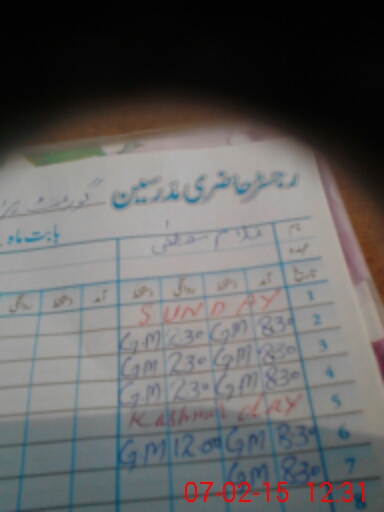 رجسٹر حاضری مدرسین گورنمنٹ
بابت ماہ
نام غلام
عہدہ
تاریخ آمد دستخط روانگی دستخط آمد دستخط روانگی
1 SUNDAY
2 830 GM 230 GM
3 830 GM 230 GM
4 830 GM 230 GM
5 Kashmir day
6 830 GM 1200 GM
7 830 GM
8
07-02-15 12:31